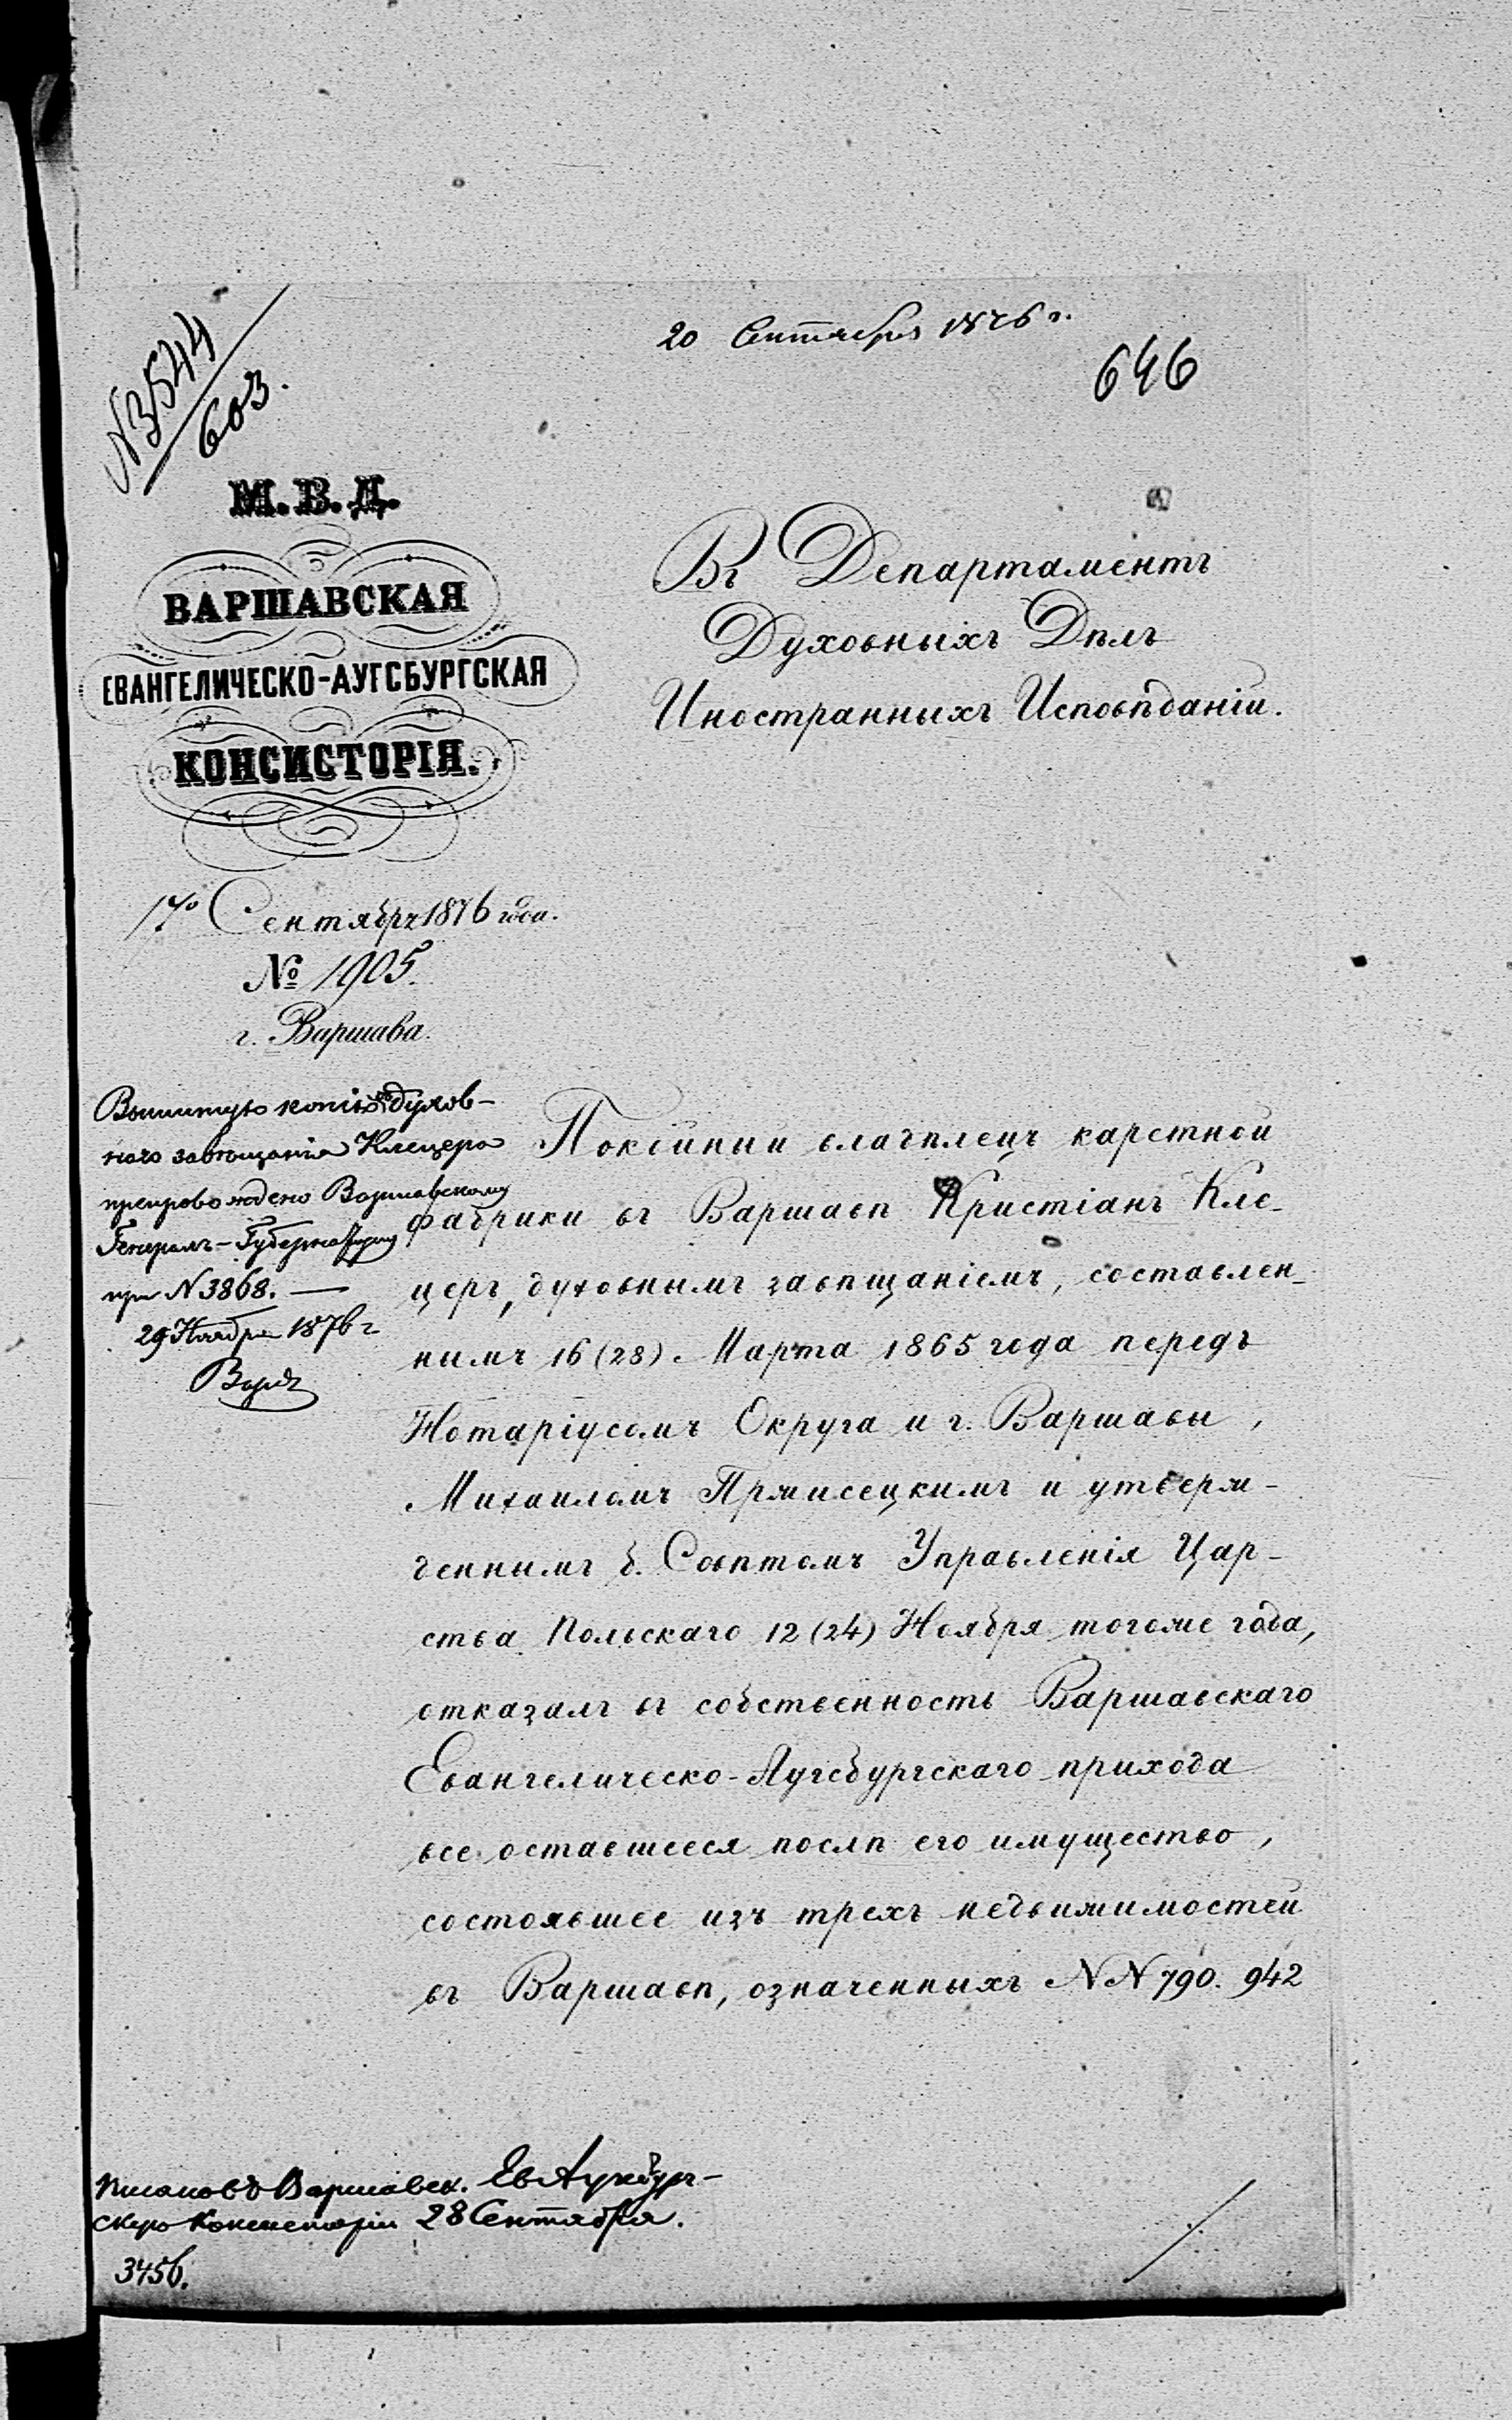 20 Сентября 1876 г.
646
№ 3544
603.
М. В. Д.
ВАРШАВСКАЯ
ЕВАНГЕЛИЧЕСКО-АУГСБУРГСКАЯ
КОНСИСТОРІЯ.
17го Сентября 1876 года.
№ 1905.
г. Варшава.
Въ Департаментъ
Духовныхъ Дѣлъ
Иностранныхъ Исповѣданій.
копію духов-
наго завѣщанія Клецера
препровождено Варшавскому
Генералъ-Губернатору
при N 3868. —
29 Ноября 1876 г.
Покойный владѣлецъ каретной
фабрики въ Варшавѣ Кристіанъ Кле-
церъ, духовнымъ завѣщаніемъ, составлен-
нымъ 16 (28) Марта 1865 года передъ
Нотаріусомъ Округа и г. Варшавы,
Михаиломъ Пржисецкимъ и утверж-
деннымъ б. Совѣтомъ Управленія Цар-
ства Польскаго 12 (24) Ноября тогоже года,
отказалъ въ собственность Варшавскаго
Евангелическо-Аугсбургскаго прихода
все оставшееся послѣ его имущество,
состоявшее изъ трехъ недвижимостей
въ Варшавѣ, означенныхъ NN 790. 942
Писано въ Варшавск. Ев Аугсбург-
скую Консисторію 28 Сентября.
3456.